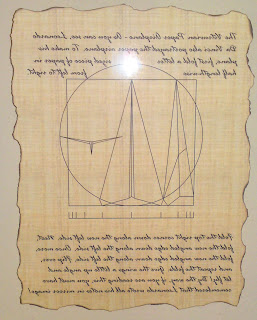 The Vitruvian Paper Airplane - As you can see, Leonardo
Da Vinci also the paper airplane. To make his
plane, first fold a letter sized piece of paper in
half lengthwise from left to right.
Fold the top right corner down along the new left side. Next,
fold the new angled edge down along the left side. Once more,
fold the new angled edge down along the left side. Flip over,
and repeat the folds. Give the wings a little up angle and
let fly! By the way, if you are reading this, you must have
remembered that Leonardo wrote all his notes in mirror image!